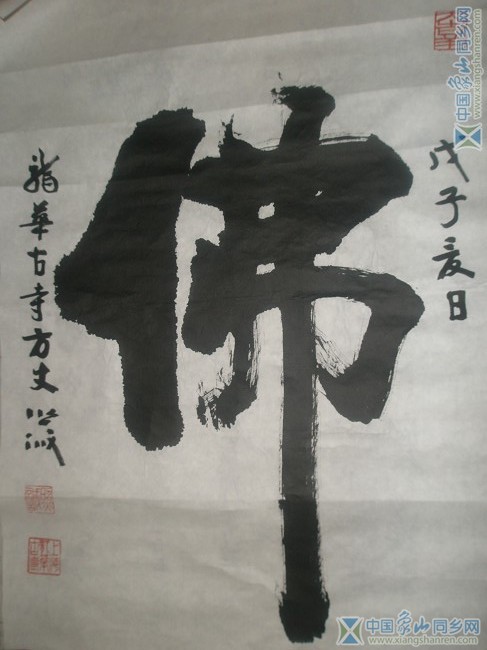 戊子夏日
佛
龍華古寺方丈照誠
中国象山同乡网
www.xiangshanren.com
中国象山同乡网
www.xiangshanren.com